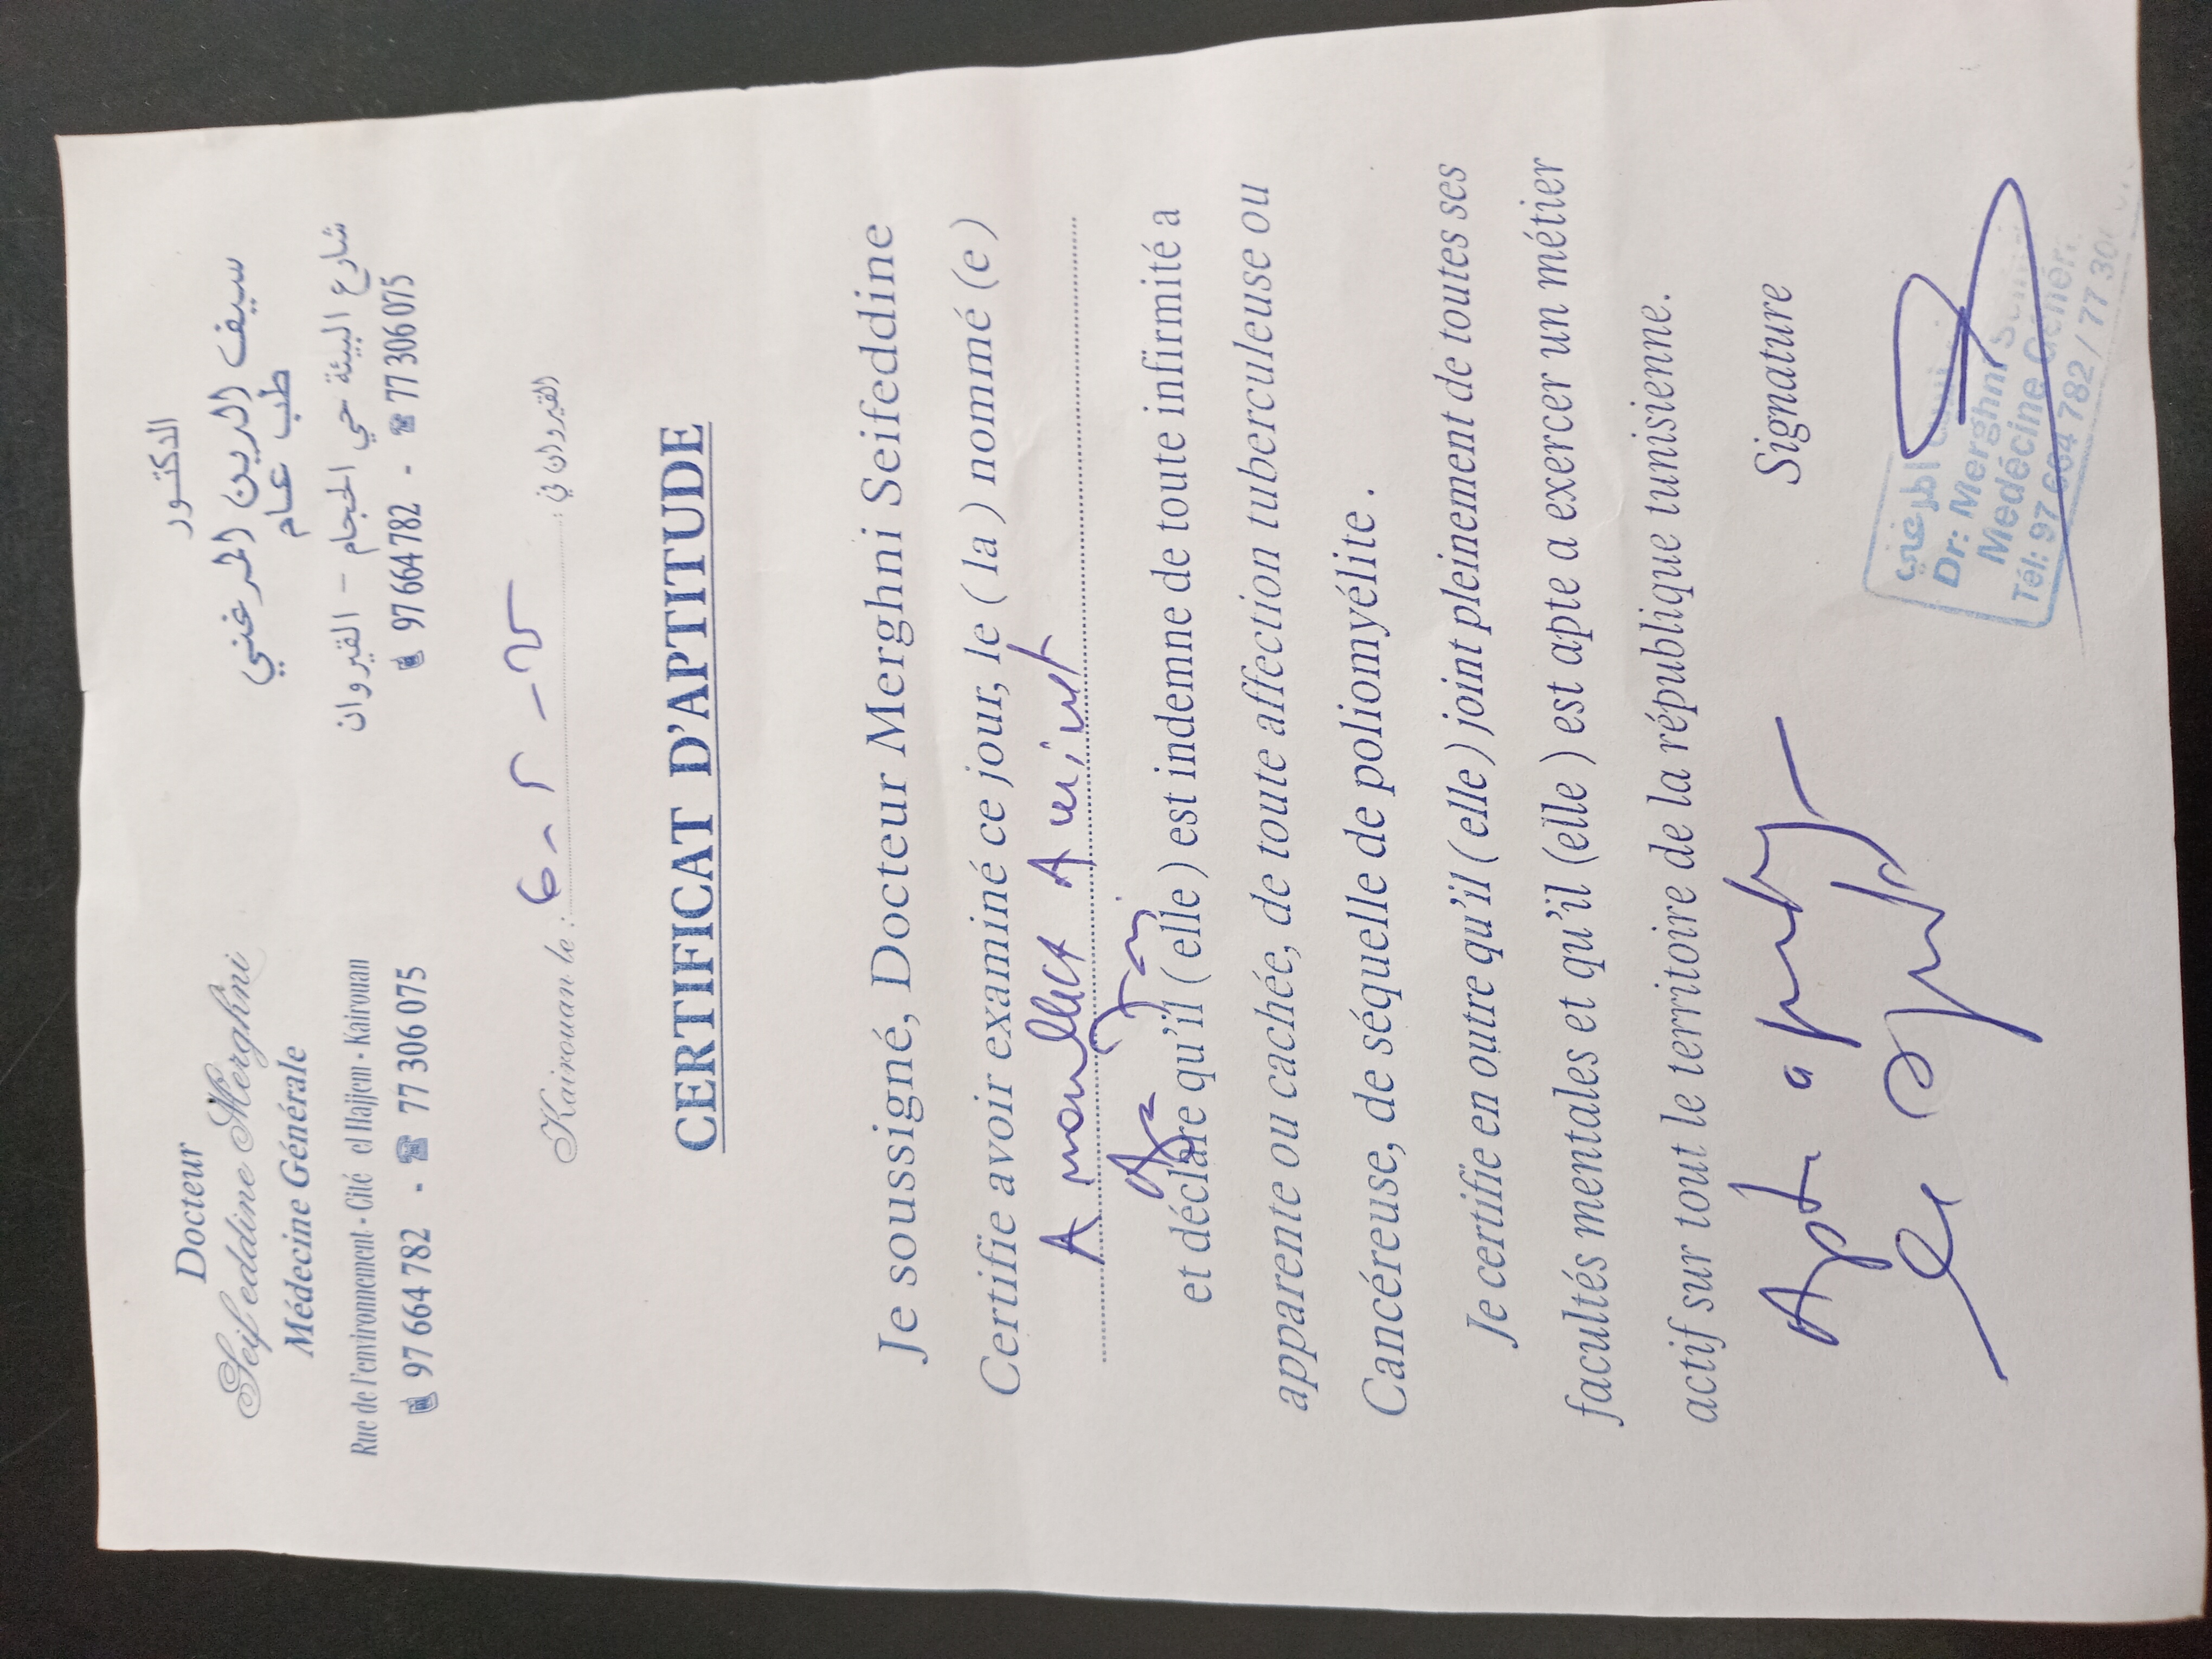 Docteur
Seifeddine Merghni
Médecine Générale
Rue de l'environnement - Cité el Hajjem - Kairouan
97 664 782 - 77 306 075
الدكتور
سيف الدين المرغني
طب عام
شارع البيئة حي الحجام - القيروان
97 664 782 - 77 306 075
Kairouan le : القيروان في :
CERTIFICAT D'APTITUDE
Je soussigné, Docteur Merghni Seifeddine
Certifie avoir examiné ce jour, le ( la ) nommé (e )
et déclare qu'il ( elle ) est indemne de toute infirmité a
apparente ou cachée, de toute affection tuberculeuse ou
Cancéreuse, de séquelle de poliomyélite .
Je certifie en outre qu'il ( elle ) joint pleinement de toutes ses
facultés mentales et qu'il (elle ) est apte a exercer un métier
actif sur tout le territoire de la république tunisienne.
Signature
Apte a
المرغني
Dr: Merghni
Medécine
Tél: 97 664 782 / 77 30